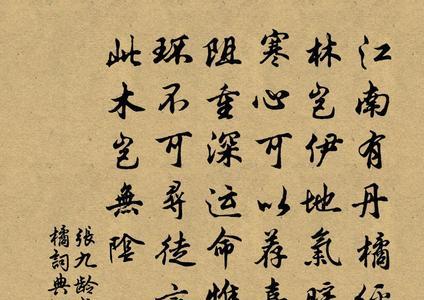 江南有丹橘
林豈伊地氣暖
寒心可以荐嘉
阻重深运命惟
环不可尋徒言
此木豈無陰
張九齡
橘詞典